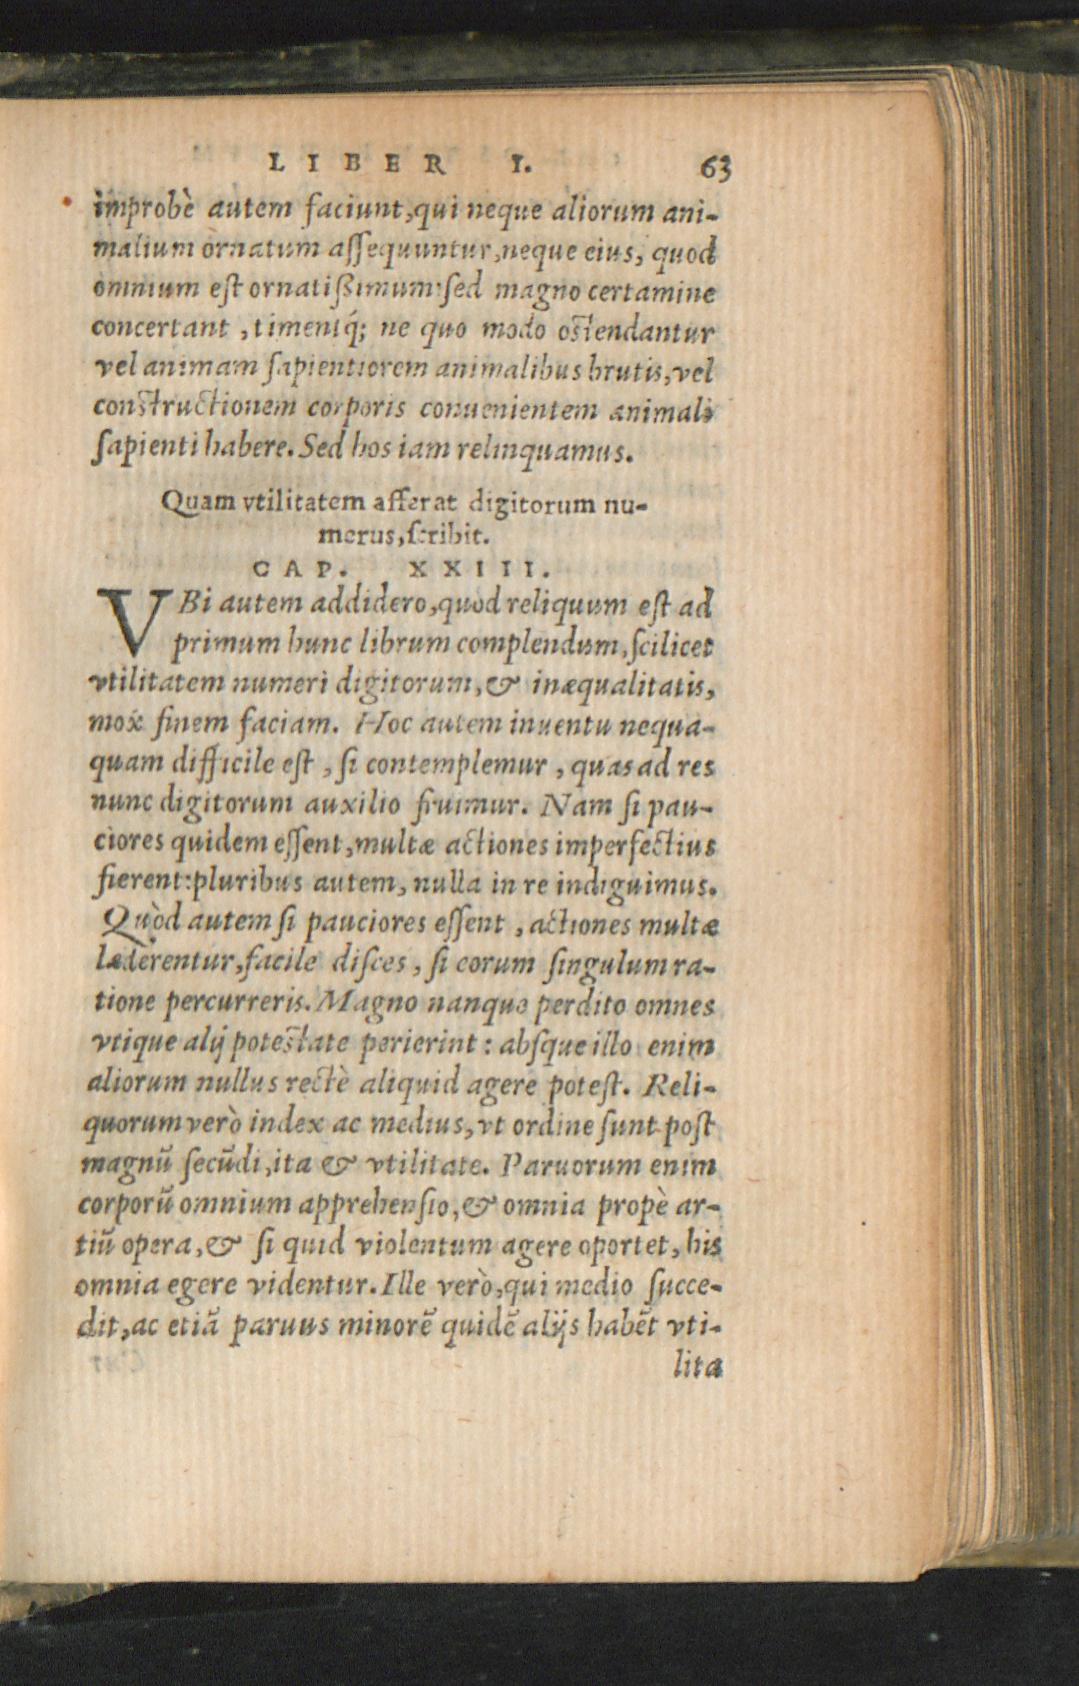 LIBER I. 63
improbè autem faciunt, qui neque aliorum ani-
malium ornatum aſſequuntur, neque eius, quod
omnium eſt ornatißimum: ſed magno certamine
concertant, timentq́; ne quo modo oſtendantur
vel animam ſapientiorem animalibus brutis, vel
conſtructionem corporis conuenientem animali
ſapienti habere. Sed hos iam relinquamus.
Quam vtilitatem afferat digitorum nu-
merus, ſcribit.
CAP. XXIII.
VBi autem addidero, quod reliquum eſt ad
primum hunc librum complendum, ſcilicet
vtilitatem numeri digitorum, & inæqualitatis,
mox finem faciam. Hoc autem inuentu nequa-
quam difficile eſt, ſi contemplemur, quas ad res
nunc digitorum auxilio fruimur. Nam ſi pau-
ciores quidem eſſent, multæ actiones imperfectius
fierent: pluribus autem, nulla in re indiguimus.
Quòd autem ſi pauciores eſſent, actiones multæ
læderentur, facile diſces, ſi eorum ſingulum ra-
tione percurreris. Magno nanque perdito omnes
vtique alij poteſtate perierint: abſque illo enim
aliorum nullus rectè aliquid agere poteſt. Reli-
quorum verò index ac medius, vt ordine ſunt poſt
magnū ſecūdi, ita & vtilitate. Paruorum enim
corporū omnium apprehenſio, & omnia propè ar-
tiū opera, & ſi quid violentum agere oportet, his
omnia egere videntur. Ille verò, qui medio ſucce-
dit, ac etiā paruus minorē quidē alijs habēt vti-
lita